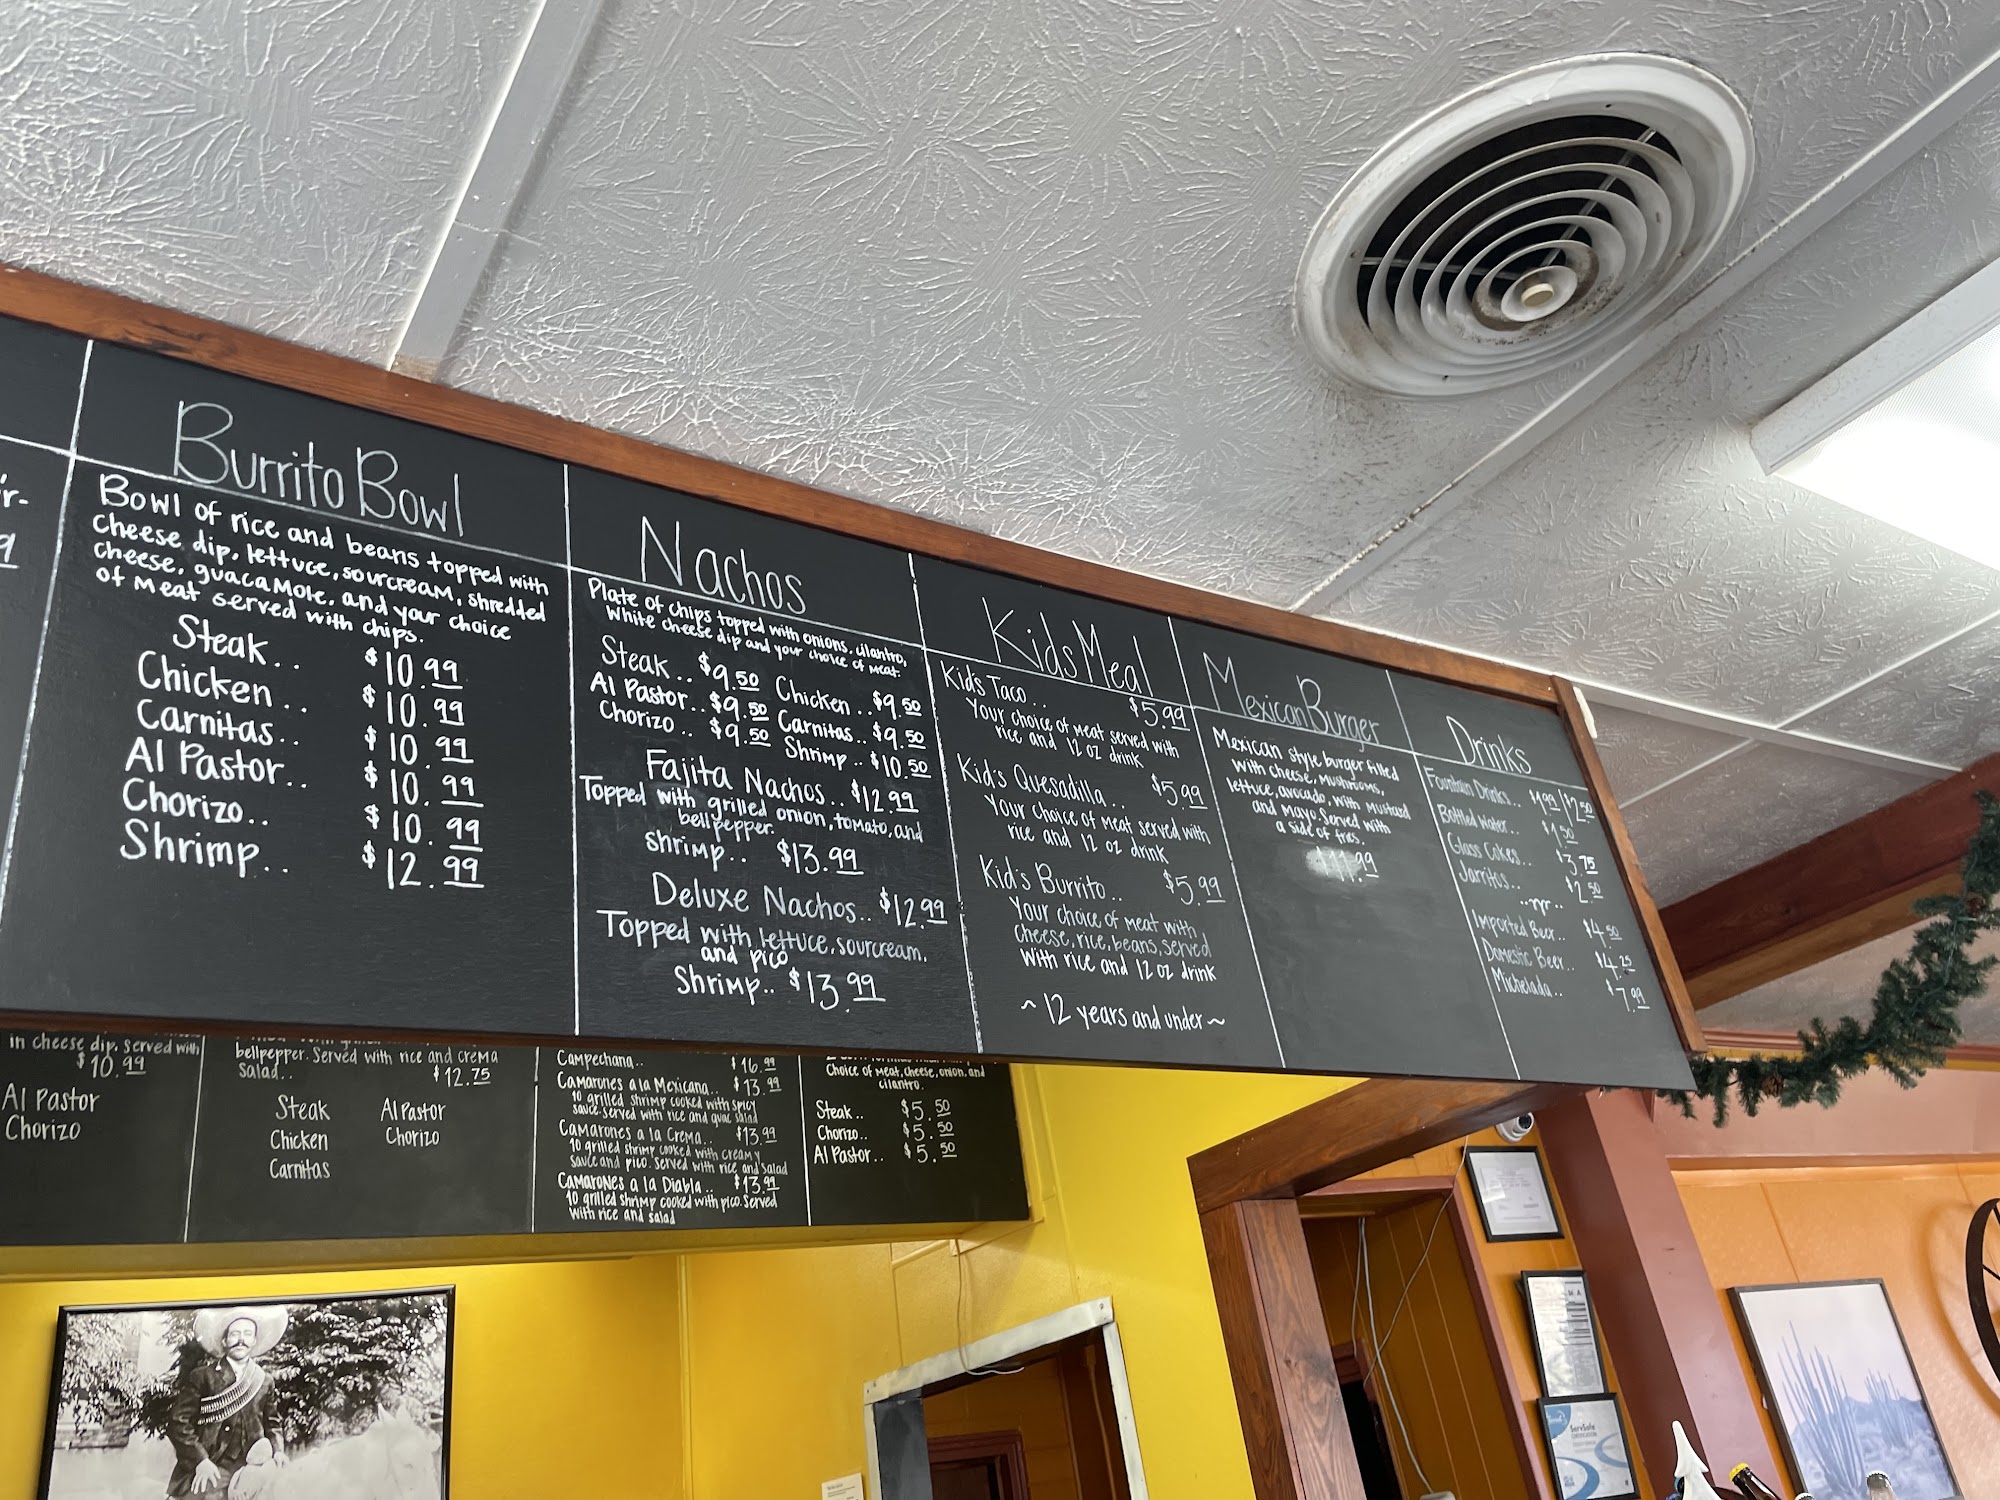 Burrito Bowl
Bowl of rice and beans topped with
cheese dip, lettuce, sourcream, shredded
cheese, guacamole, and your choice
of meat served with chips.
Steak.. $10.99
Chicken.. $10.99
Carnitas.. $10.99
Al Pastor.. $10.99
Chorizo.. $10.99
Shrimp.. $12.99
Nachos
Plate of chips topped with onions, cilantro,
White cheese dip and your choice of meat.
Steak.. $9.50 Chicken.. $9.50
Al Pastor.. $9.50 Carnitas.. $9.50
Chorizo.. $9.50 Shrimp.. $10.50
Fajita Nachos.. $12.99
Topped with grilled onion, tomato, and
bellpepper.
shrimp.. $13.99
Deluxe Nachos.. $12.99
Topped with lettuce, sourcream,
and pico
Shrimp.. $13.99
Kids Meal
Kid's Taco.. $5.99
Your choice of meat served with
rice and 12 oz drink
Kid's Quesadilla.. $5.99
Your choice of meat served with
rice and 12 oz drink
Kid's Burrito.. $5.99
Your choice of meat with,
cheese, rice, beans, served
with rice and 12 oz drink
~ 12 years and under ~
Mexican Burger
Mexican style burger filled
with cheese, mushrooms,
lettuce, avocado, with mustard
and mayo. Served with
a side of fries.
$11.99
Drinks
Fountain Drinks.. $1.99 | $2.50
Bottled Water.. $1.50
Glass Cokes.. $3.75
Jarritos.. $2.50
Imported Beer.. $4.50
Domestic Beer.. $4.25
Michelada.. $7.99
in cheese dip. Served with
$10.99
Al Pastor
Chorizo
bellpepper. Served with rice and crema
Salad.. $12.75
Steak Al Pastor
Chicken Chorizo
Carnitas
Campechana.. $16.99
Camarones a la Mexicana.. $13.99
10 grilled shrimp cooked with spicy
sauce. Served with rice and guac salad
Camarones a la Crema.. $13.99
10 grilled shrimp cooked with creamy
sauce and pico. Served with rice and salad
Camarones a la Diabla.. $13.99
10 grilled shrimp cooked with pico. Served
with rice and salad
Choice of meat, cheese, onion, and
cilantro.
Steak.. $5.50
Chorizo.. $5.50
Al Pastor.. $5.50
ServSafe